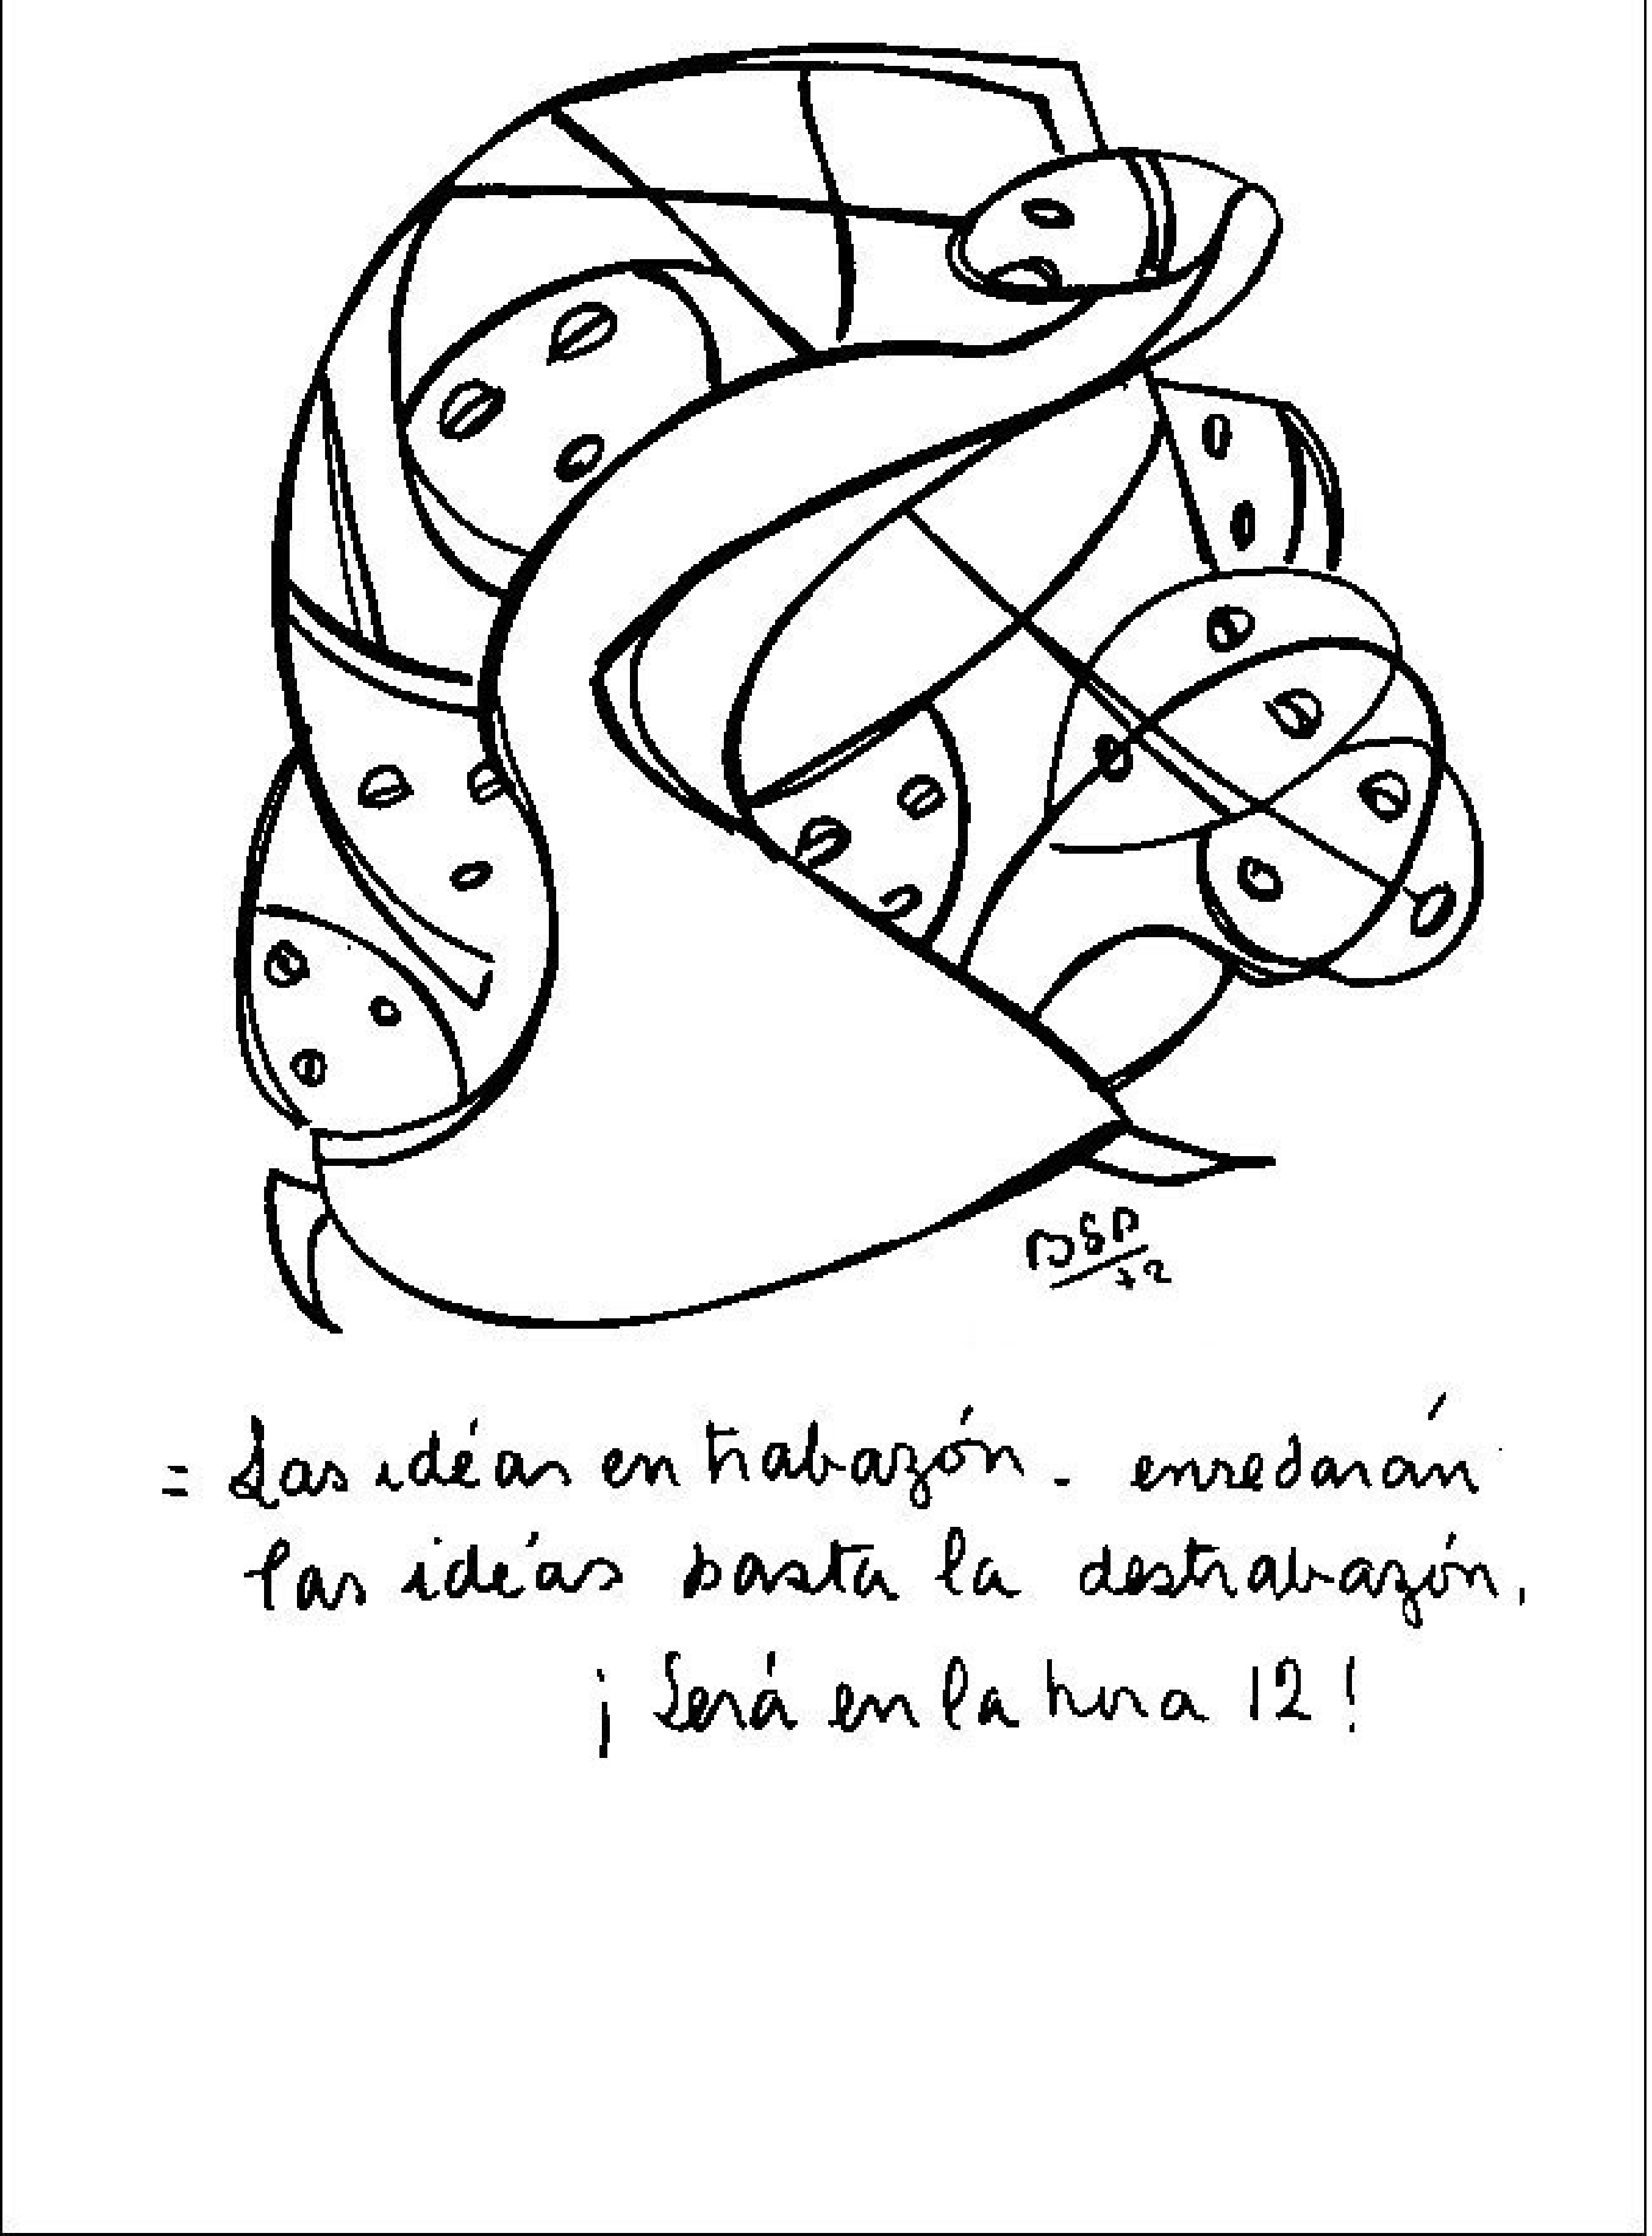 BSP
72
= Las idéas en trabazón - enredarán
las idéas hasta la destrabazón.
¡Será en la hora 12!